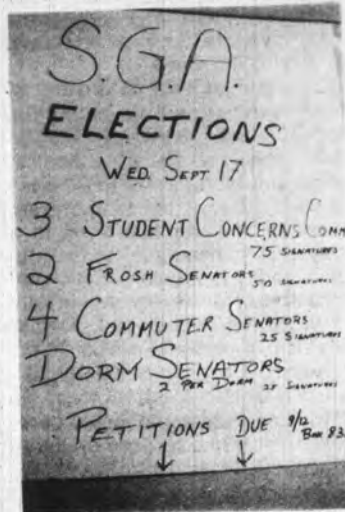 S.G.A.
ELECTIONS
WED. SEPT 17
3 STUDENT CONCERNS COMM
75 SIGNATURES
2 FROSH SENATORS
50 SIGNATURES
4 COMMUTER SENATORS
25 SIGNATURES
DORM SENATORS
2 PER DORM 25 SIGNATURES
PETITIONS DUE 9/12
BOX 83